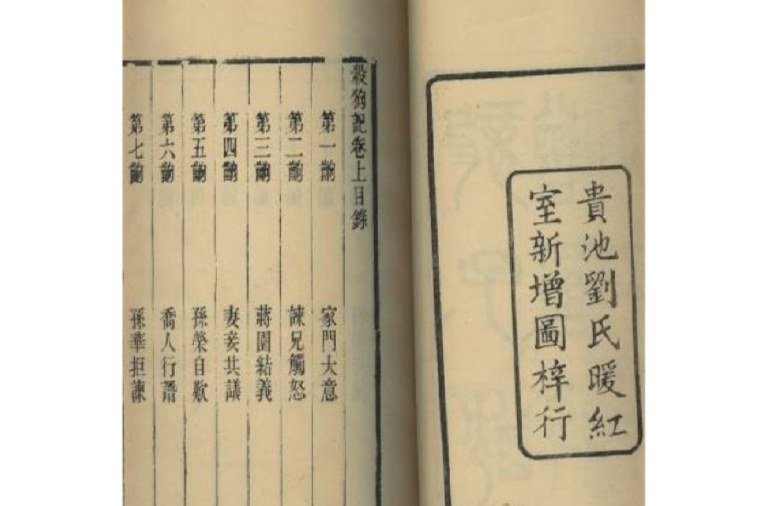 貴池劉氏暖紅
室新增圖梓行
殺狗記卷上目錄
第一齣 家門大意
第二齣 諫兄觸怒
第三齣 蔣園結義
第四齣 妻妾共議
第五齣 孫榮自歎
第六齣 喬人行譖
第七齣 孫華拒諫